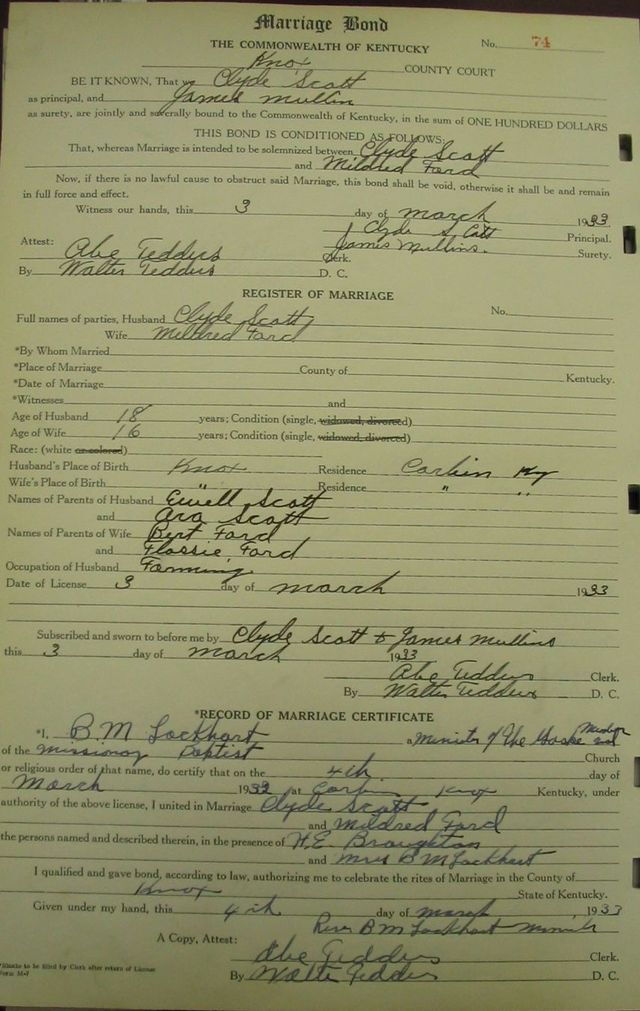 Marriage Bond
THE COMMONWEALTH OF KENTUCKY No. 74
Knox COUNTY COURT
BE IT KNOWN, That we Clyde Scott
as principal, and James Mullin
as surety, are jointly and severally bound to the Commonwealth of Kentucky, in the sum of ONE HUNDRED DOLLARS
THIS BOND IS CONDITIONED AS FOLLOWS:
That, whereas Marriage is intended to be solemnized between Clyde Scott
and Mildred Ford
Now, if there is no lawful cause to obstruct said Marriage, this bond shall be void, otherwise it shall be and remain
in full force and effect.
Witness our hands, this 3 day of march 1933
Clyde Scott Principal.
James Mullins. Surety.
Attest: Abe Tedders Clerk.
By Walter Tedders D. C.
REGISTER OF MARRIAGE
Full names of parties, Husband Clyde Scott No.
Wife Mildred Ford
*By Whom Married
*Place of Marriage County of Kentucky.
*Date of Marriage
*Witnesses and
Age of Husband 18 years; Condition (single, widowed, divorced)
Age of Wife 16 years; Condition (single, widowed, divorced)
Race: (white or colored)
Husband's Place of Birth Knox Residence Corbin Ky
Wife's Place of Birth " Residence " "
Names of Parents of Husband Ewell Scott
and Ara Scott
Names of Parents of Wife Bert Ford
and Flossie Ford
Occupation of Husband Farming
Date of License 3 day of march 1933
Subscribed and sworn to before me by Clyde Scott & James Mullins
this 3 day of march 1933
Abe Tedders Clerk.
By Walter Tedders D. C.
*RECORD OF MARRIAGE CERTIFICATE
*I, B.M Lockhart a Minister of the
of the Missionary Baptist Church
or religious order of that name, do certify that on the 4th day of
March 1933 at Corbin Knox Kentucky, under
authority of the above license, I united in Marriage Clyde Scott
and Mildred Ford
the persons named and described therein, in the presence of H.E. Broughton
and Mrs B M Lockhart
I qualified and gave bond, according to law, authorizing me to celebrate the rites of Marriage in the County of
Knox State of Kentucky.
Given under my hand, this 4th day of march, 1933
Rev B M Lockhart
A Copy, Attest: Abe Tedders Clerk.
By Walter Tedders D. C.
*Blanks to be filled by Clerk after return of License
Form M-7